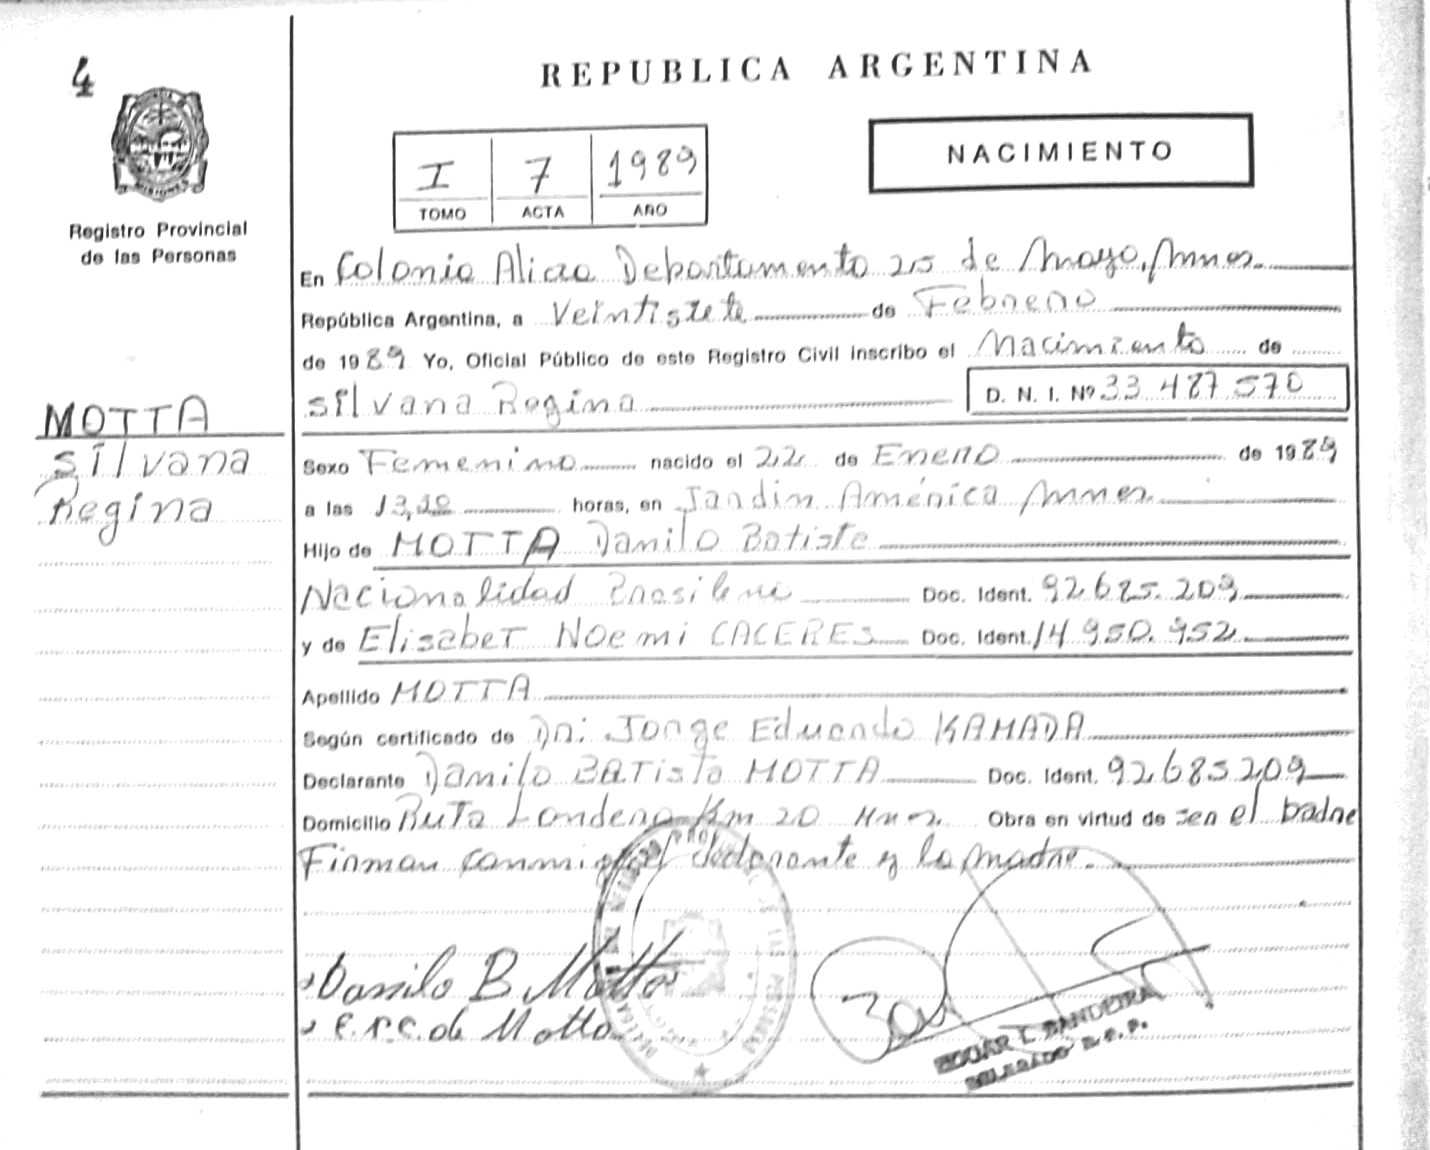 4
REPUBLICA ARGENTINA
MISIONES
Registro Provincial
de las Personas
I 7 1989
TOMO ACTA AÑO
NACIMIENTO
En Colonia Alicia Departamento 25 de Mayo, Mnes.
República Argentina, a Veintisiete de Febrero
de 1989 Yo, Oficial Público de este Registro Civil inscribo el Nacimiento de
Silvana Regina D. N. I. Nº 33 487 570
MOTTA
Silvana
Regina
Sexo Femenino nacido el 22 de Enero de 1989
a las horas, en Jardin América Mnes.
Hijo de MOTTA Danilo Batista
Nacionalidad Doc. Ident. 92.685.209
y de Elisabet Noemi CACERES Doc. Ident. 14.950.952
Apellido MOTTA
Según certificado de Dr. Jorge Eduardo KAMADA
Declarante Danilo BATista MOTTA Doc. Ident. 92685209
Domicilio Ruta Km 20 Obra en virtud de ser el padre
Firman conmigo el declarante y la madre.
Danilo B Motta
E.N.C. de Motta
EDGAR L. BANDEIRA
DELEGADO R.C.P.